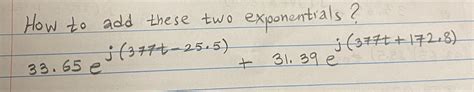 How to add these two exponentials?
33.65 e^j(377t-25.5) + 31.39 e^j(377t+172.8)